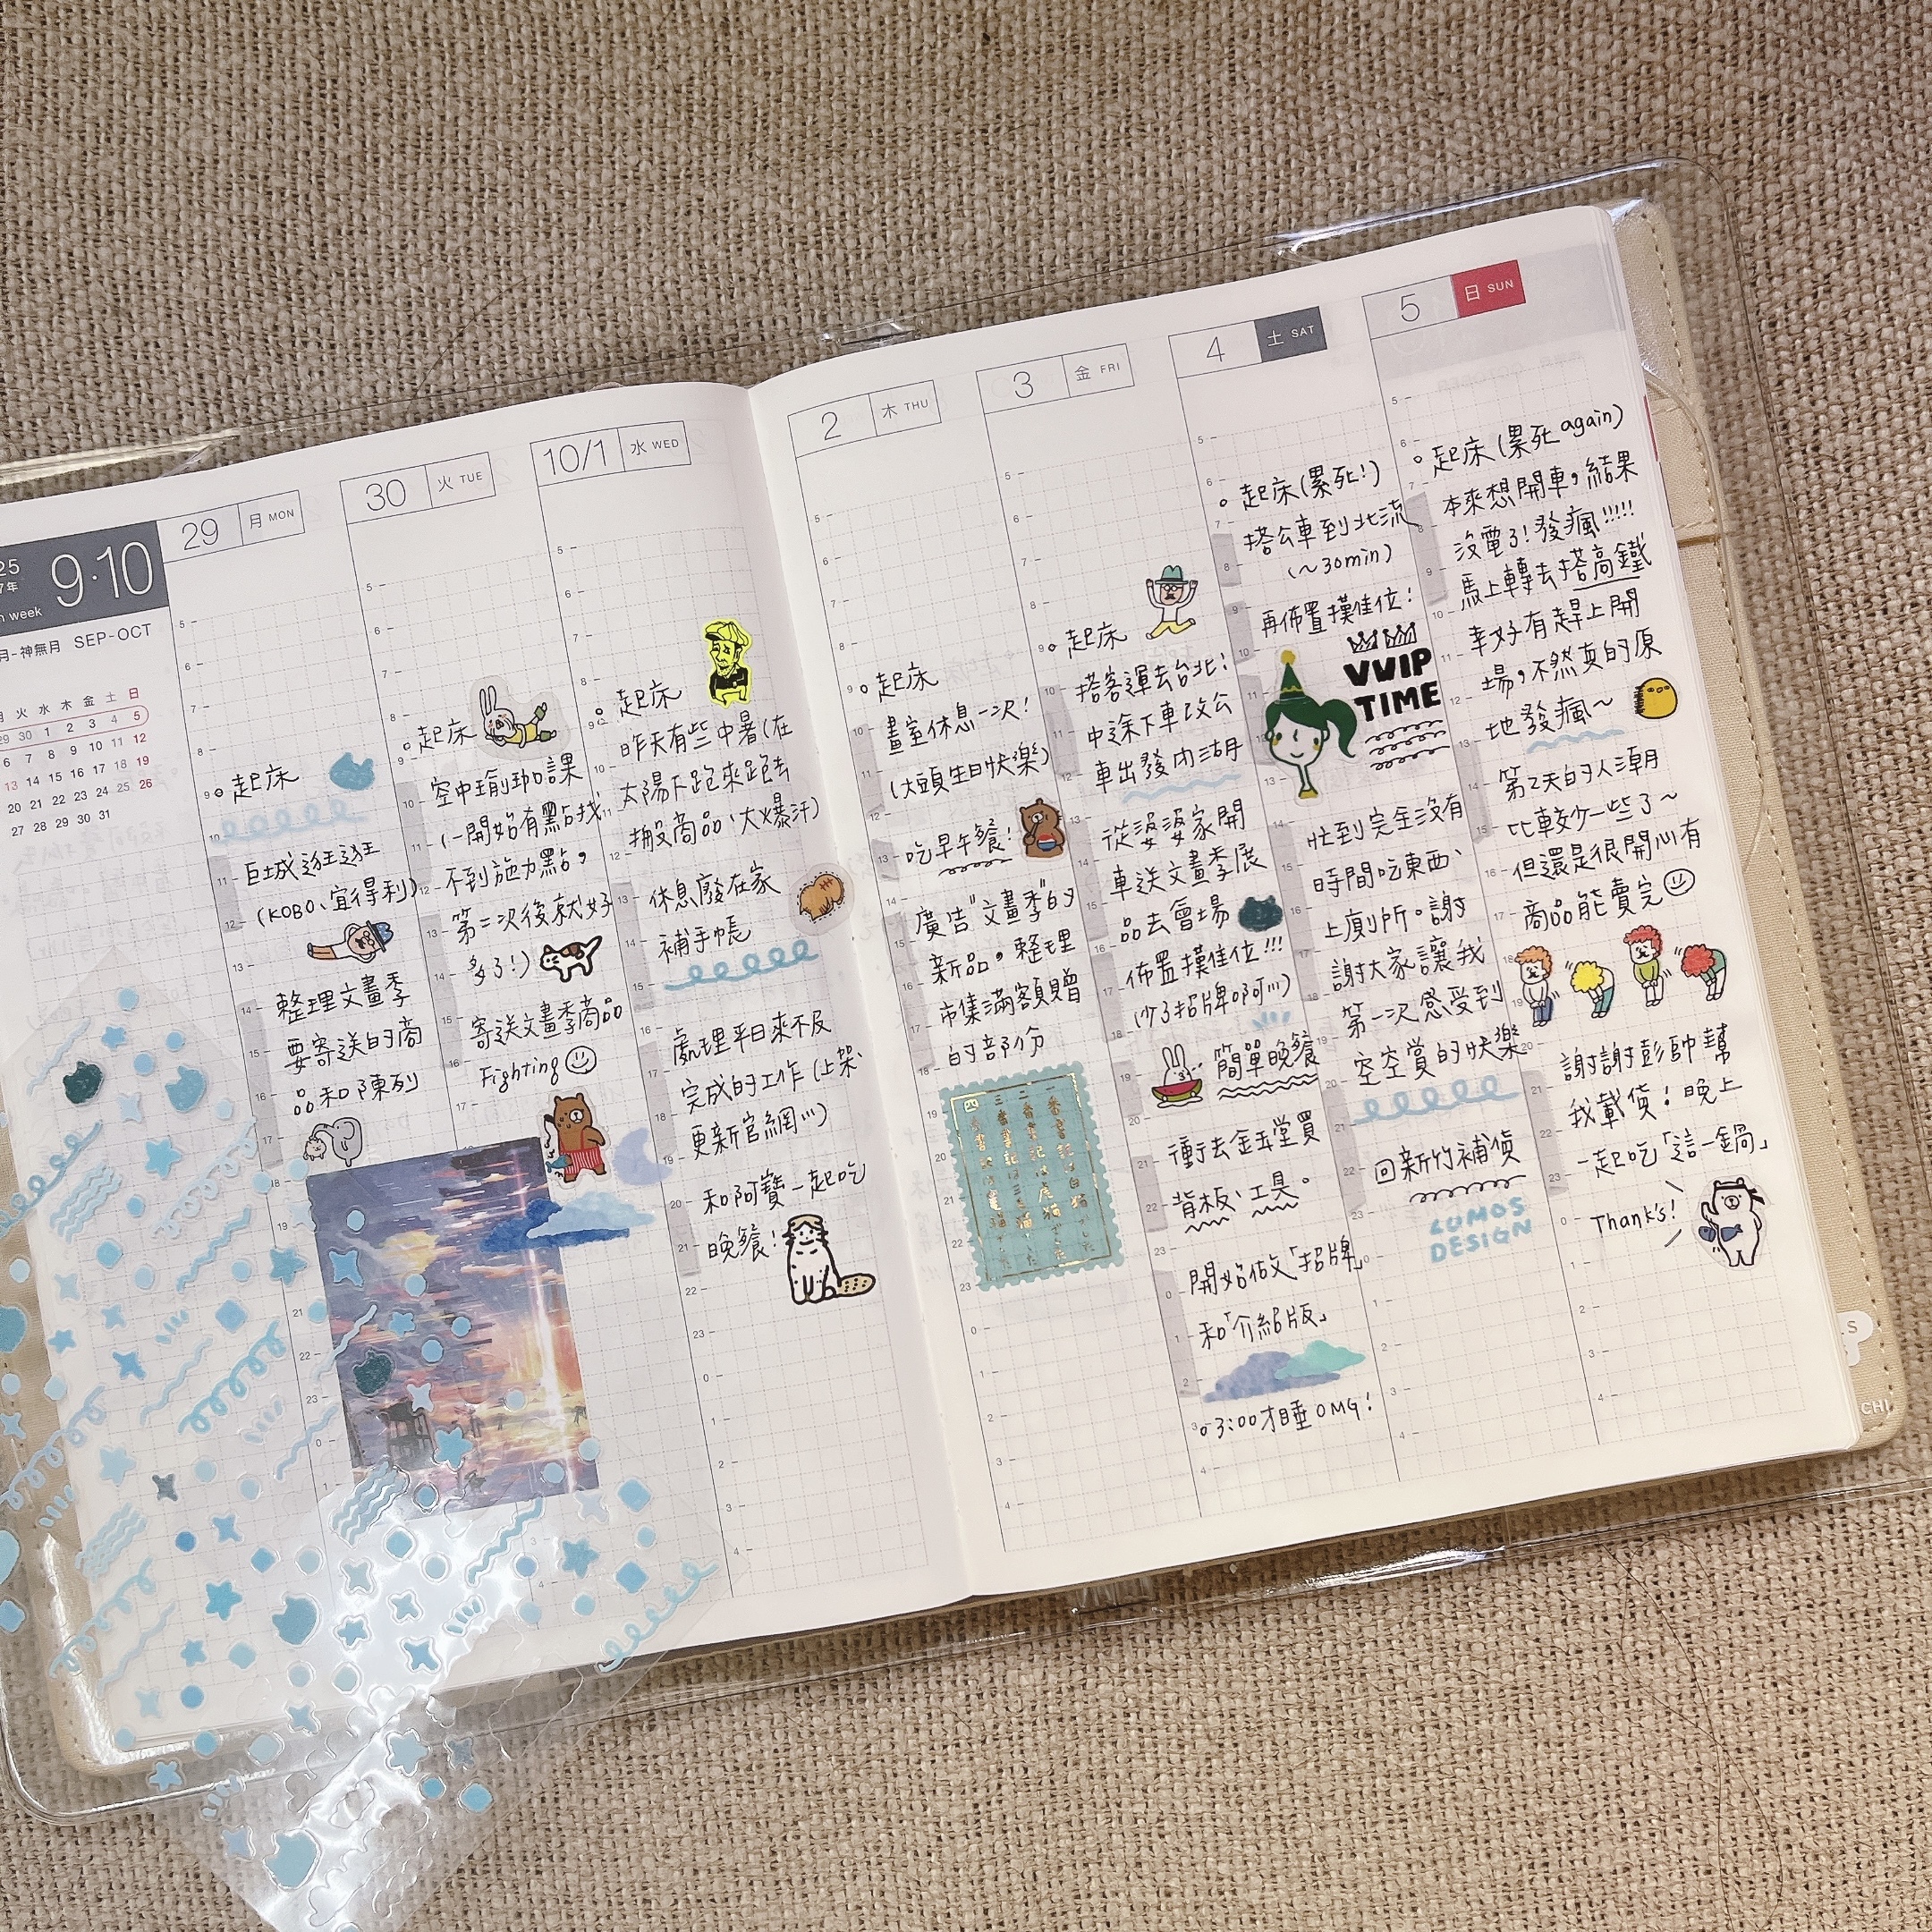 25
7年
week
9·10
月-神無月 SEP-OCT
月 火 水 木 金 土 日
29 30 1 2 3 4 5
6 7 8 9 10 11 12
13 14 15 16 17 18 19
20 21 22 23 24 25 26
27 28 29 30 31
29 月 MON
起床
巨城逛逛
(KOBO、宜得利)
整理文畫季
要寄送的商
品和陳列
30 火 TUE
起床
空中瑜珈課
(一開始有點找
不到施力點，
第二次後就好
多了!)
寄送文畫季商品
Fighting
10/1 水 WED
起床
昨天有些中暑(在
太陽下跑來跑去
搬商品、大爆汗)
休息廢在家
補手帳
處理平日來不及
完成的工作(上架、
更新官網...)
和阿寶一起吃
晚餐!
2 木 THU
起床
畫室休息一次!
(大頭生日快樂)
吃早午餐!
廣告"文畫季"的
新品。整理
市集滿額贈
的部份
3 金 FRI
起床
搭客運去台北!
中途下車改公
車出發內湖
從婆婆家開
車送文畫季展
品去會場
佈置攤位!!!
(少了招牌啊...)
簡單晚餐
衝去金玉堂買
背板、工具。
開始做「招牌」
和「介紹版」
03:00才睡OMG!
4 土 SAT
起床(累死!)
搭公車到北流
(~30min)
再佈置攤位!
VVIP
TIME
忙到完全沒有
時間吃東西、
上廁所。謝
謝大家讓我
第一次感受到
空空賞的快樂
回新竹補貨
LUMOS
DESIGN
5 日 SUN
起床(累死again)
本來想開車，結果
沒電了!發瘋!!!!!
馬上轉去搭高鐵
幸好有趕上開
場，不然真的原
地發瘋~
第2天的人潮
比較少一些了~
但還是很開心有
商品能賣完
謝謝彭帥幫
我載貨!晚上
一起吃「這一鍋」
Thank's!
CHI